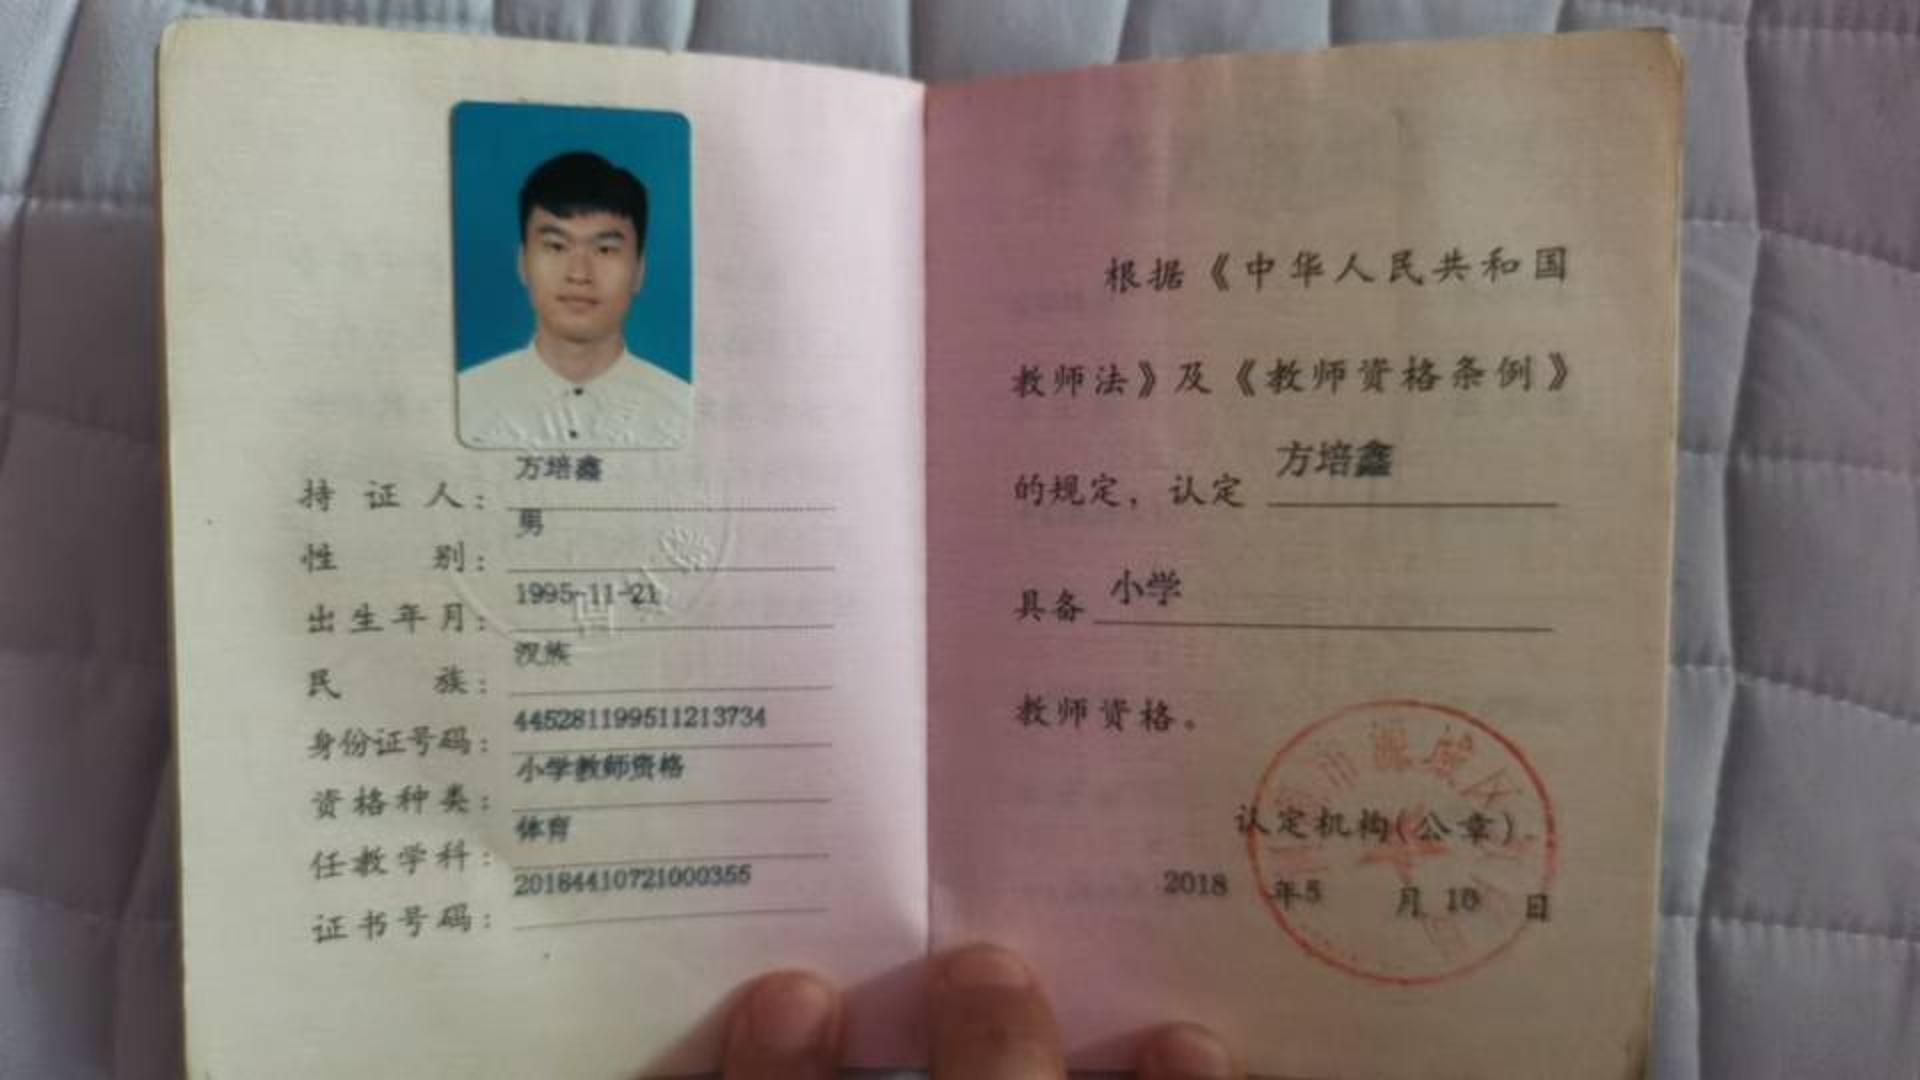 持证人：方培鑫
性别：男
出生年月：1995-11-21
民族：汉族
身份证号码：445281199511213734
资格种类：小学教师资格
任教学科：体育
证书号码：20184410721000355
根据《中华人民共和国
教师法》及《教师资格条例》
的规定，认定 方培鑫
具备 小学
教师资格。
市源城区
认定机构(公章)
2018 年5 月 10 日